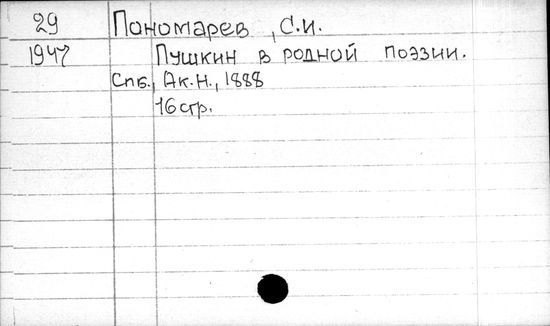 29 Пономарев, С.И.
1947 Пушкин в родной поэзии.
Спб., Ак.Н., 1888
16стр.